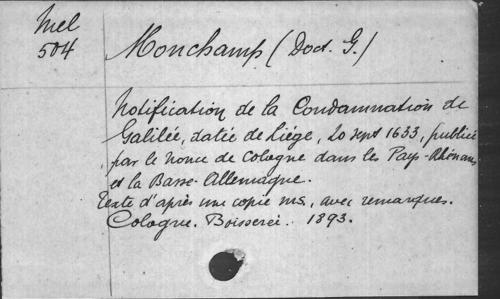 Mel
504
Monchamp (Doct. G.)
Notification de la Condamnation de
Galilée, datée de Liége, 20 sept 1633, publiée
par le nonce de Cologne dans les Pays-Rhénans
et la Basse-Allemagne.
Texte d'après une copie ms, avec remarques.
Cologne. Boisserei. 1893.